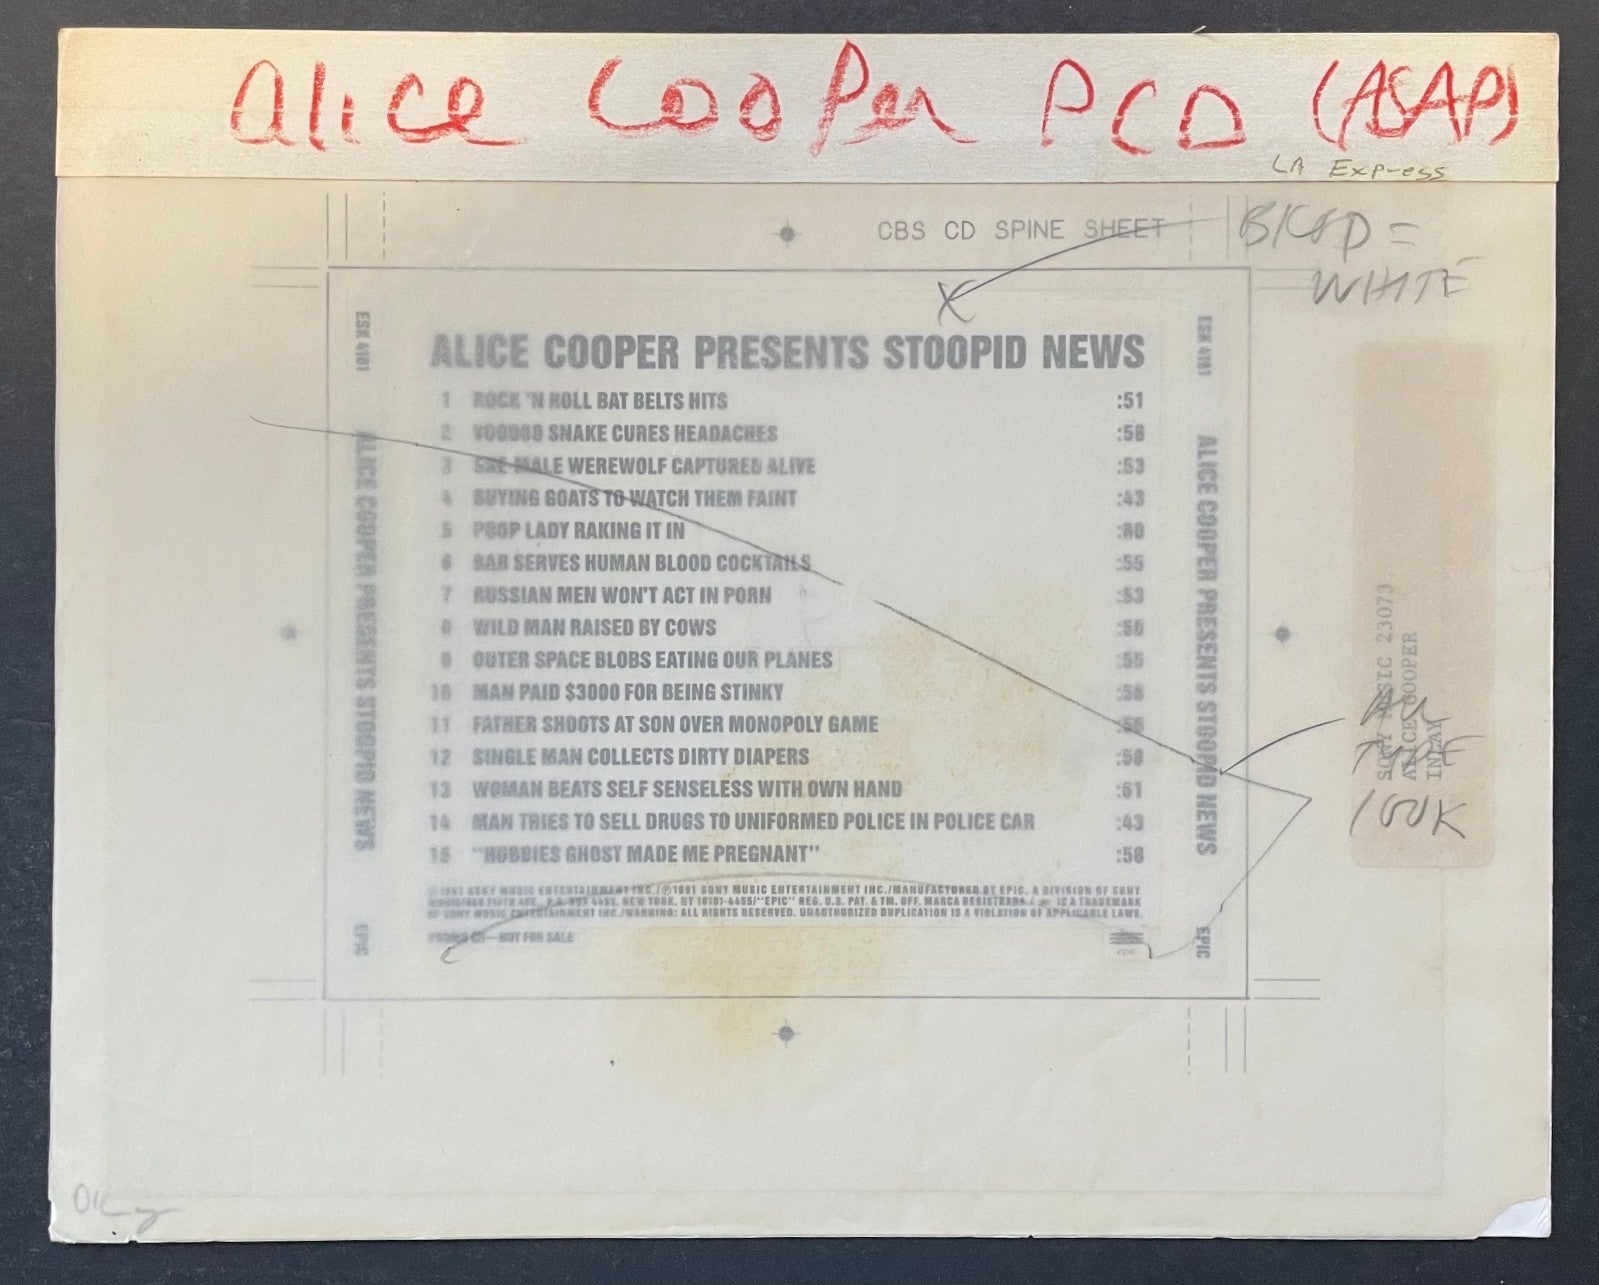 Alice Cooper PCD (ASAP)
LA Express
CBS CD SPINE SHEET
BKGD =
WHITE
ESK 4181
ALICE COOPER PRESENTS STOOPID NEWS
EPIC
ALICE COOPER PRESENTS STOOPID NEWS
1 ROCK 'N ROLL BAT BELTS HITS :51
2 VOODOO SNAKE CURES HEADACHES :56
3 SHE MALE WEREWOLF CAPTURED ALIVE :53
4 BUYING GOATS TO WATCH THEM FAINT :43
5 POOP LADY RAKING IT IN
6 BAR SERVES HUMAN BLOOD COCKTAILS :55
7 RUSSIAN MEN WON'T ACT IN PORN :53
8 WILD MAN RAISED BY COWS
9 OUTER SPACE BLOBS EATING OUR PLANES :55
10 MAN PAID $3000 FOR BEING STINKY
11 FATHER SHOOTS AT SON OVER MONOPOLY GAME
12 SINGLE MAN COLLECTS DIRTY DIAPERS
13 WOMAN BEATS SELF SENSELESS WITH OWN HAND :61
14 MAN TRIES TO SELL DRUGS TO UNIFORMED POLICE IN POLICE CAR :43
15 "HUBBIES GHOST MADE ME PREGNANT" :58
© 1991 SONY MUSIC ENTERTAINMENT INC./℗ 1991 SONY MUSIC ENTERTAINMENT INC./MANUFACTURED BY EPIC, A DIVISION OF SONY
MUSIC/550 FIFTH AVE., P.O. BOX 4455, NEW YORK, NY 10101-4455/"EPIC" REG. U.S. PAT. & TM. OFF. MARCA REGISTRADA. IS A TRADEMARK
OF SONY MUSIC ENTERTAINMENT INC./WARNING: ALL RIGHTS RESERVED. UNAUTHORIZED DUPLICATION IS A VIOLATION OF APPLICABLE LAWS.
PROMO CD—NOT FOR SALE
ESK 4181
ALICE COOPER PRESENTS STOOPID NEWS
EPIC
SONY MUSIC 23073
ALICE COOPER
INLAY
ALL
TYPE
100K